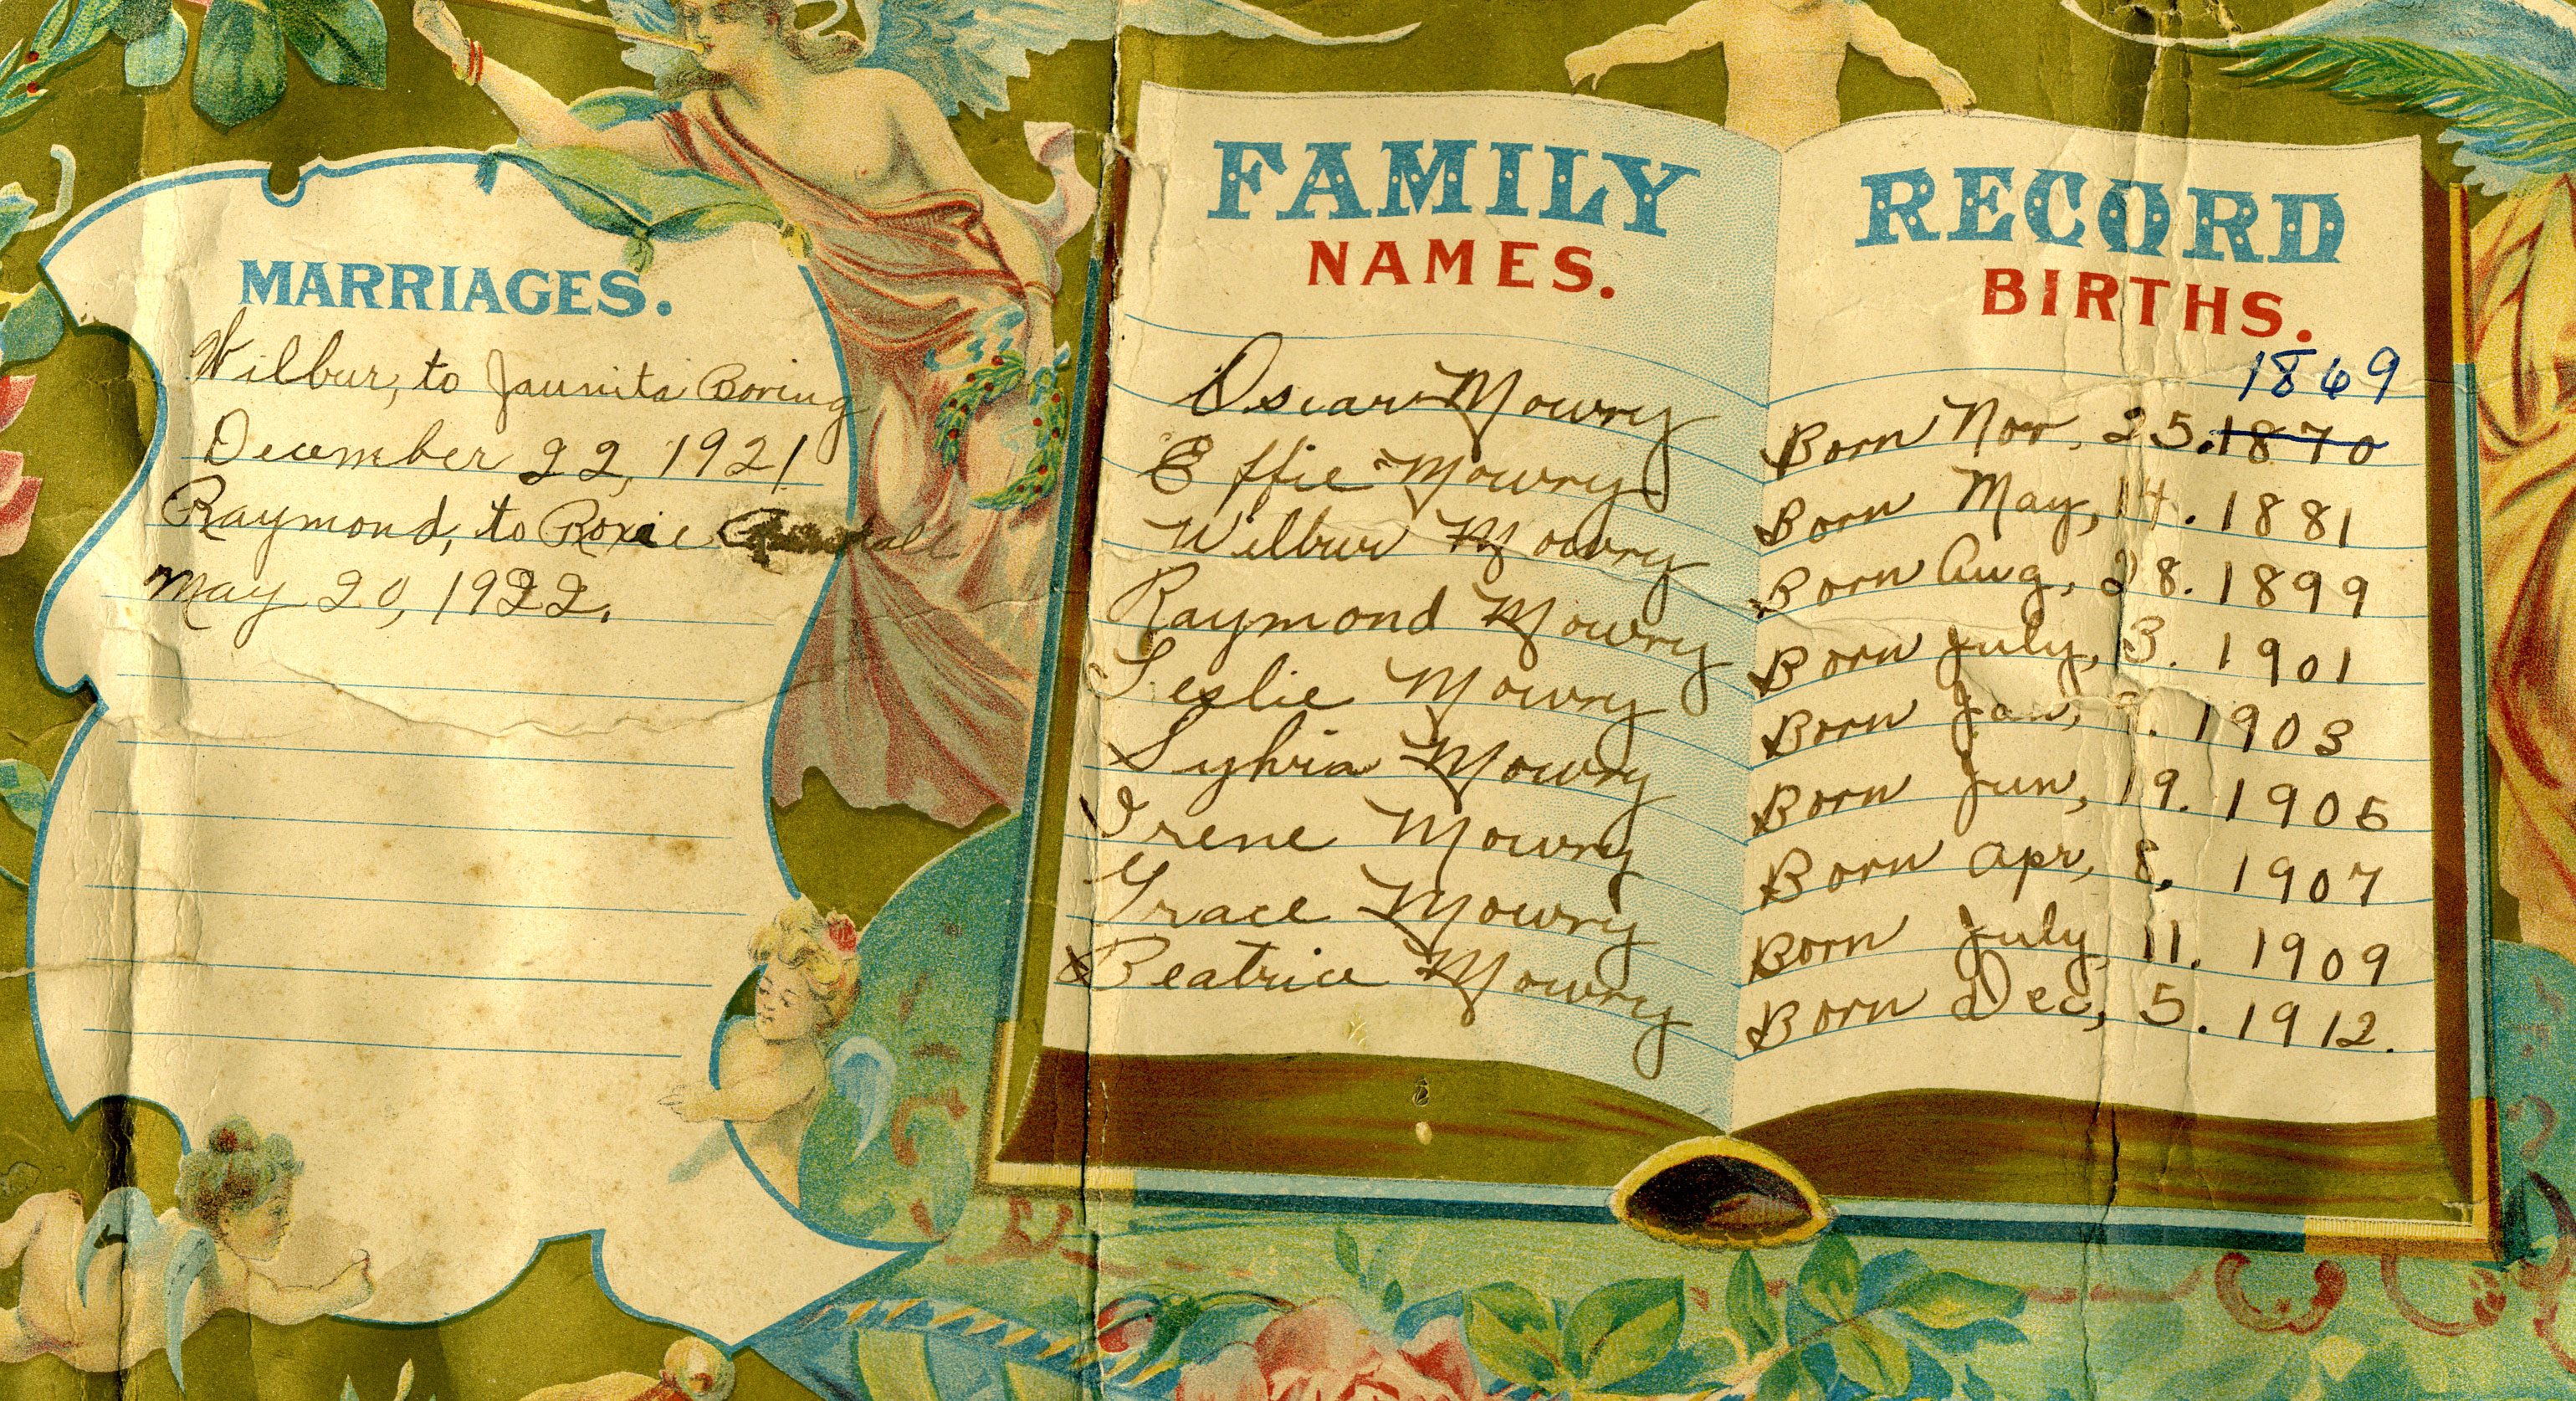 MARRIAGES.
Wilbur, to Jaunita Boring
December 22, 1921
Raymond, to Roxie
May 20, 1922.
FAMILY
NAMES.
Oscar Mowry
Effie Mowry
Wilbur Mowry
Raymond Mowry
Leslie Mowry
Sylvia Mowry
Irene Mowry
Grace Mowry
Beatrice Mowry
RECORD
BIRTHS.
1869
Born Nov, 25. 1870
Born May, 14. 1881
Born Aug, 28. 1899
Born July, 3. 1901
Born Jan, 1903
Born Jun, 19. 1905
Born Apr, 8, 1907
Born July, 11. 1909
Born Dec, 5. 1912.